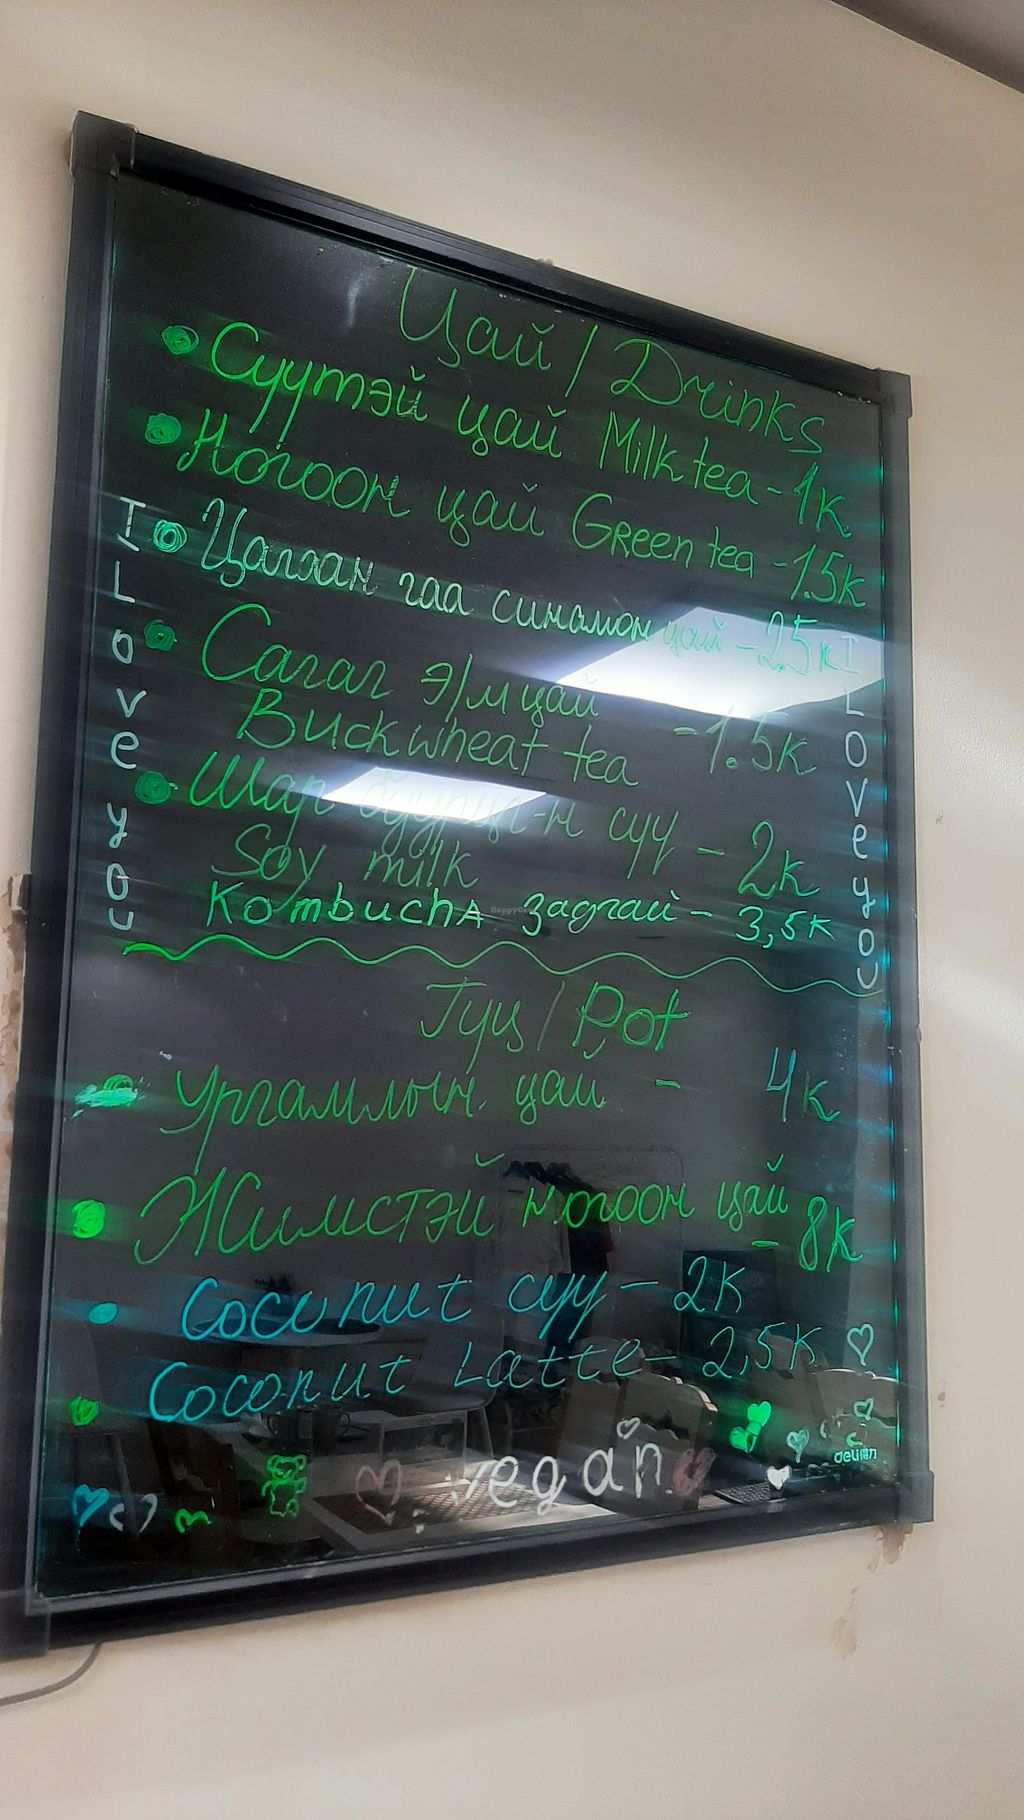 Цай / Drinks
Сүүтэй цай Milk tea - 1к
Ногоон цай Green tea - 1.5к
Цагаан гаа синамон цай - 2.5к
Сагаг э/м цай
Buckwheat tea - 1.5к
Шар буурцаг-н сүү - 2к
Soy milk
Kombucha задгай - 3,5к
I Love you
I Love you
Гүц / Pot
Ургамлын цай - 4к
Жимстэй ногоон цай - 8к
Coconut сүү - 2к
Coconut Latte - 2,5к
vegan
deli得力
HappyCow